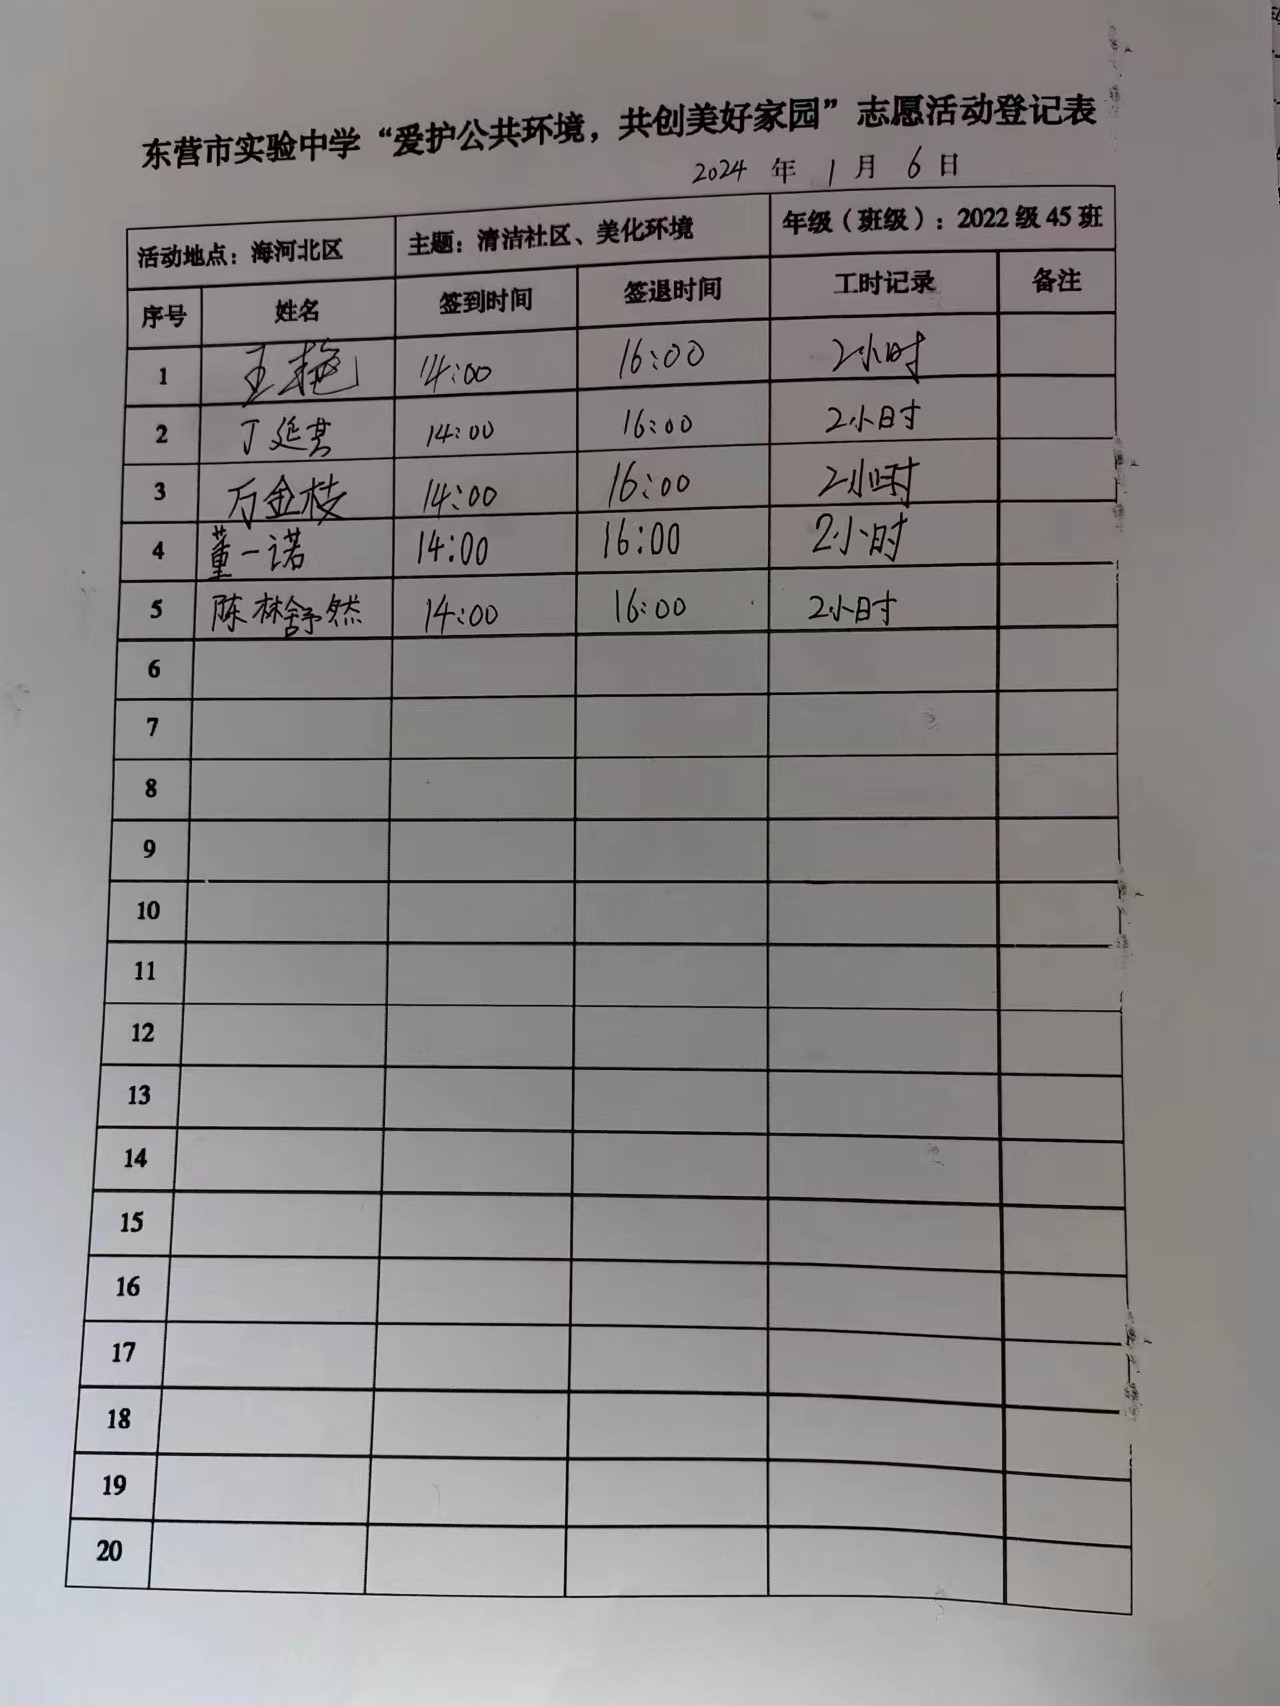 东营市实验中学“爱护公共环境，共创美好家园”志愿活动登记表
2024 年 1 月 6 日
活动地点：海河北区 主题：清洁社区、美化环境 年级（班级）：2022 级 45 班
序号 姓名 签到时间 签退时间 工时记录 备注
1 王艳 14:00 16:00 2小时
2 丁延 14:00 16:00 2小时
3 万金枝 14:00 16:00 2小时
4 董一诺 14:00 16:00 2小时
5 陈林舒然 14:00 16:00 2小时
6
7
8
9
10
11
12
13
14
15
16
17
18
19
20